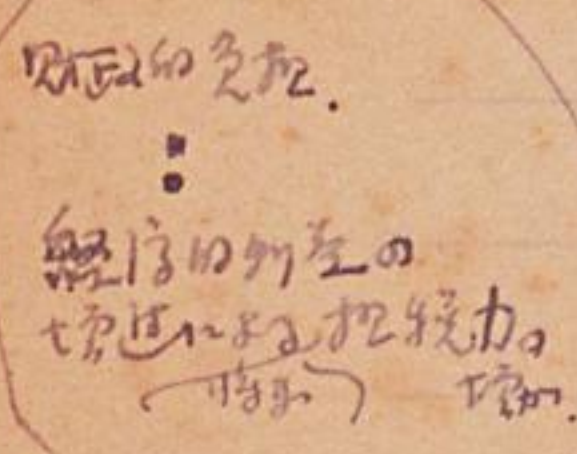 財政的負担.
:
経済的利益の
増進による担税力の
(将来) 増加.